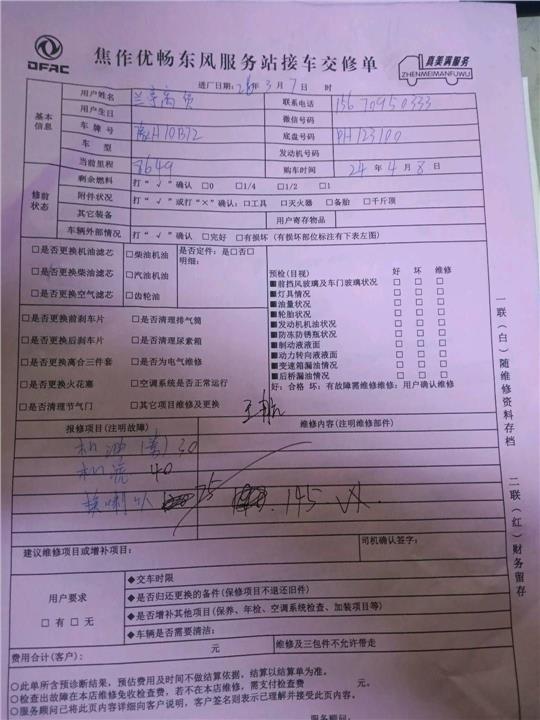 DFAC
焦作优畅东风服务站接车交修单
真美满服务
ZHENMEIMANFUWU
进厂日期: 年 3 月 7 日 时
基本信息
用户姓名
联系电话 15670950333
用户生日
微信号码
车牌号 豫H10B72
底盘号码 PH123100
车型
发动机号码
当前里程 8649
购车时间 24 年 4 月 8 日
修前状态
剩余燃料 打“√”确认 □0 □1/4 □1/2 □1
附件状况 打“√”或打“×”确认:□工具 □灭火器 □备胎 □千斤顶
其它装备
用户寄存物品
车辆外部情况 打“√”确认 □完好 □有损坏 (有损坏部位标注有下表左图)
□是否更换机油滤芯 □柴油机油 是否定件: 是□否□
□是否更换柴油滤芯 □汽油机油 明细:
□是否更换空气滤芯 □齿轮油
□是否更换前刹车片 □是否清理排气筒
□是否更换后刹车片 □是否清理尿素箱
□是否更换离合三件套 □是否为电气维修
□是否更换火花塞 □空调系统是否正常运行
□是否清理节气门 □其它项目维修及更换
预检(目视) 好 坏 维修
■前挡风玻璃及车门玻璃状况 □ □ □
■灯具情况 □ □ □
■油量状况 □ □ □
■轮胎状况 □ □ □
■发动机机油状况 □ □ □
■防冻防锈瓶状况 □ □ □
■制动液液面 □ □ □
■动力转向液液面 □ □ □
■变速箱漏油情况 □ □ □
■后桥漏油情况 □ □ □
好:合格 坏:有故障需维修维修:用户确认维修
报修项目(注明故障)
维修内容(注明维修部件)
机油 30
机滤 40
换喇叭 75
145
建议维修项目或增补项目:
司机确认签字:
用户要求
□有 □无
◆交车时限
◆是否归还更换的备件(保修项目不退还旧件)
◆是否增补其他项目(保养、年检、空调系统检查、加装项目等)
◆车辆是否需要清洁:
费用合计(客户): 元
维修及三包件不允许带走
○此单所含预诊断结果,预估费用及时间不做结算依据,结算以结算单为准。
○检查出故障在本店维修免收检查费,若不在本店维修,需支付检查费 元。
○服务顾问已将此页内容详细向客户说明,客户签名则表示已理解并接受此页内容。
服务顾问:
一联(白)随维修资料存档
二联(红)财务留存